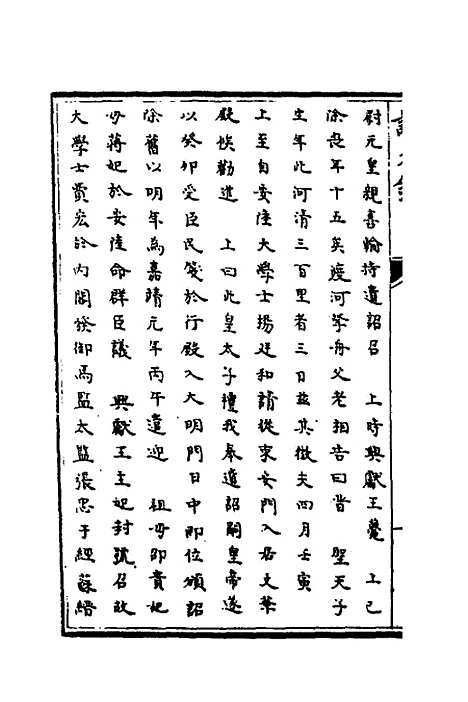 尉元皇親喜輪持遺詔召　上時興獻王薨　上已
除喪年十五矣渡河擎舟父老相告曰昔　聖天子
生年此河清三百里者三日茲其徵夫四月壬寅
上至自安陸大學士楊廷和請從東安門入居文華
殿俟勸進　上曰此皇太子禮我奉遺詔嗣皇帝遂
以癸卯受臣民箋於行殿入大明門日中即位頒詔
除舊以明年為嘉靖元年丙午遣迎　祖母邵貴妃
母蔣妃於安陸命群臣議　興獻王王妃封號召故
大學士費宏於內閣後御馬監太監張忠于經蘇縉